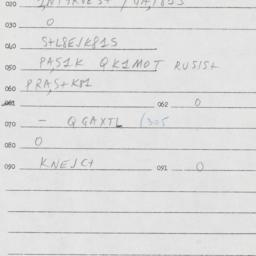 020
030 0
040 S+L8EJK81S
050 PA,S1K QK1MOT RUSIS+
060 PRA,S+K81
061 062 0
070 - QGAXTL (305
080 0
090 KNEJC+ 091 0